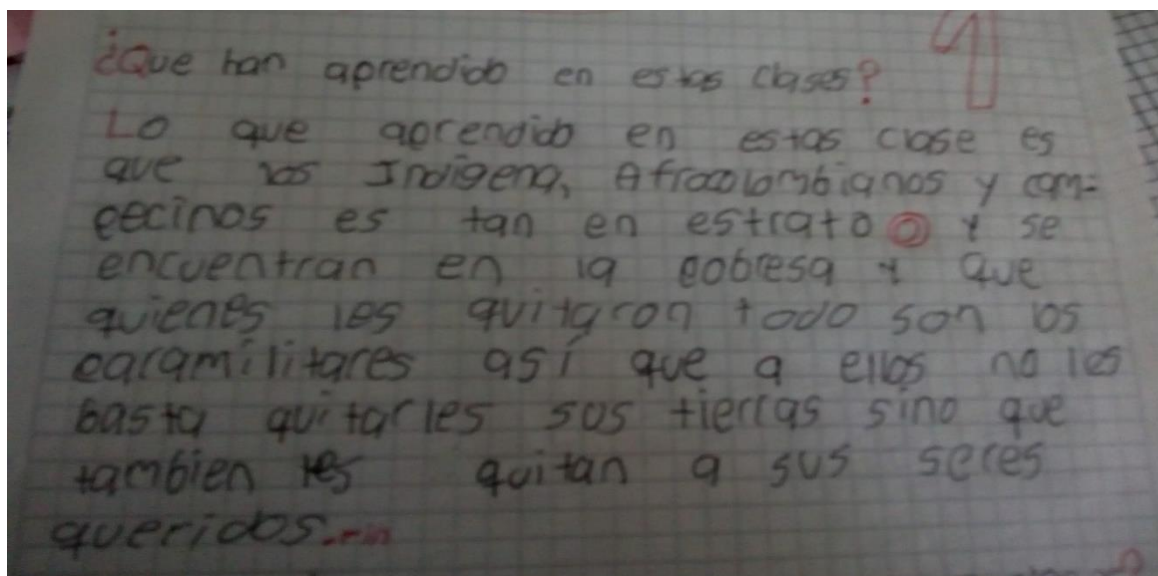 ¿Que han aprendido en estas clases?
Lo que aprendido en estas clase es
que los Indigena, Afrocolombianos y cam-
pecinos es tan en estrato 0 y se
encuentran en la pobresa y que
quienes les quitaron todo son los
paramilitares así que a ellos no les
basta quitarles sus tierras sino que
tambien les quitan a sus seres
queridos.-fin